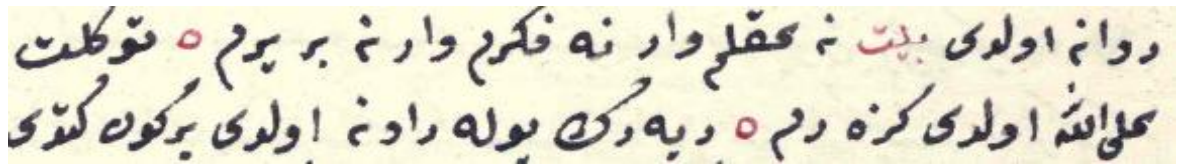 روانه اولدی بیت نه عقلم وار نه فکرم وار نه بر یرم ه توکلت
علی الله اولدی کزه رم ه دیه رک یوله راونه اولدی برکون کتدی